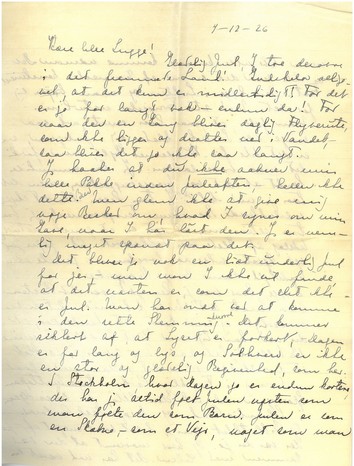 9-12-26
Kære lille Sugge!
Glædelig Jul, I to derovre
i det fremmede Land! Endskøndt
vel, at det kun er midlertidigt! For det
er jo for langt væk - endnu da! For
naar der en Gang bliver daglig Flyverute,
som ikke ligger og dratter ned i Vandet
saa bliver det jo ikke saa langt.
I husker at du ikke aabner min
lille Pakke inden Juleaften - heller ikke
dette. Men glem ikke at give mig
nogle Besked om, hvad I synes om min
, naar I har læst den. Jeg er nem-
lig meget spændt paa det.
Det bliver jo nok en lidt underlig Jul
for jer, - men mon I ikke vil finde,
at det næsten er, som det slet ikke
er Jul. Man har ondt ved at komme
i den rette Stemning - det kommer
sikkert af, at Lyset er forkert, - dagen
er for lang og lys, og Solhverv er ikke
en stor og glædelig Begivenhed, som her.
I Stockholm, hvor dagen jo er endnu kortere
der har jeg altid følt Julen næsten som
man følte den som Barn. Julen er som
en - som et Vejr, noget som man